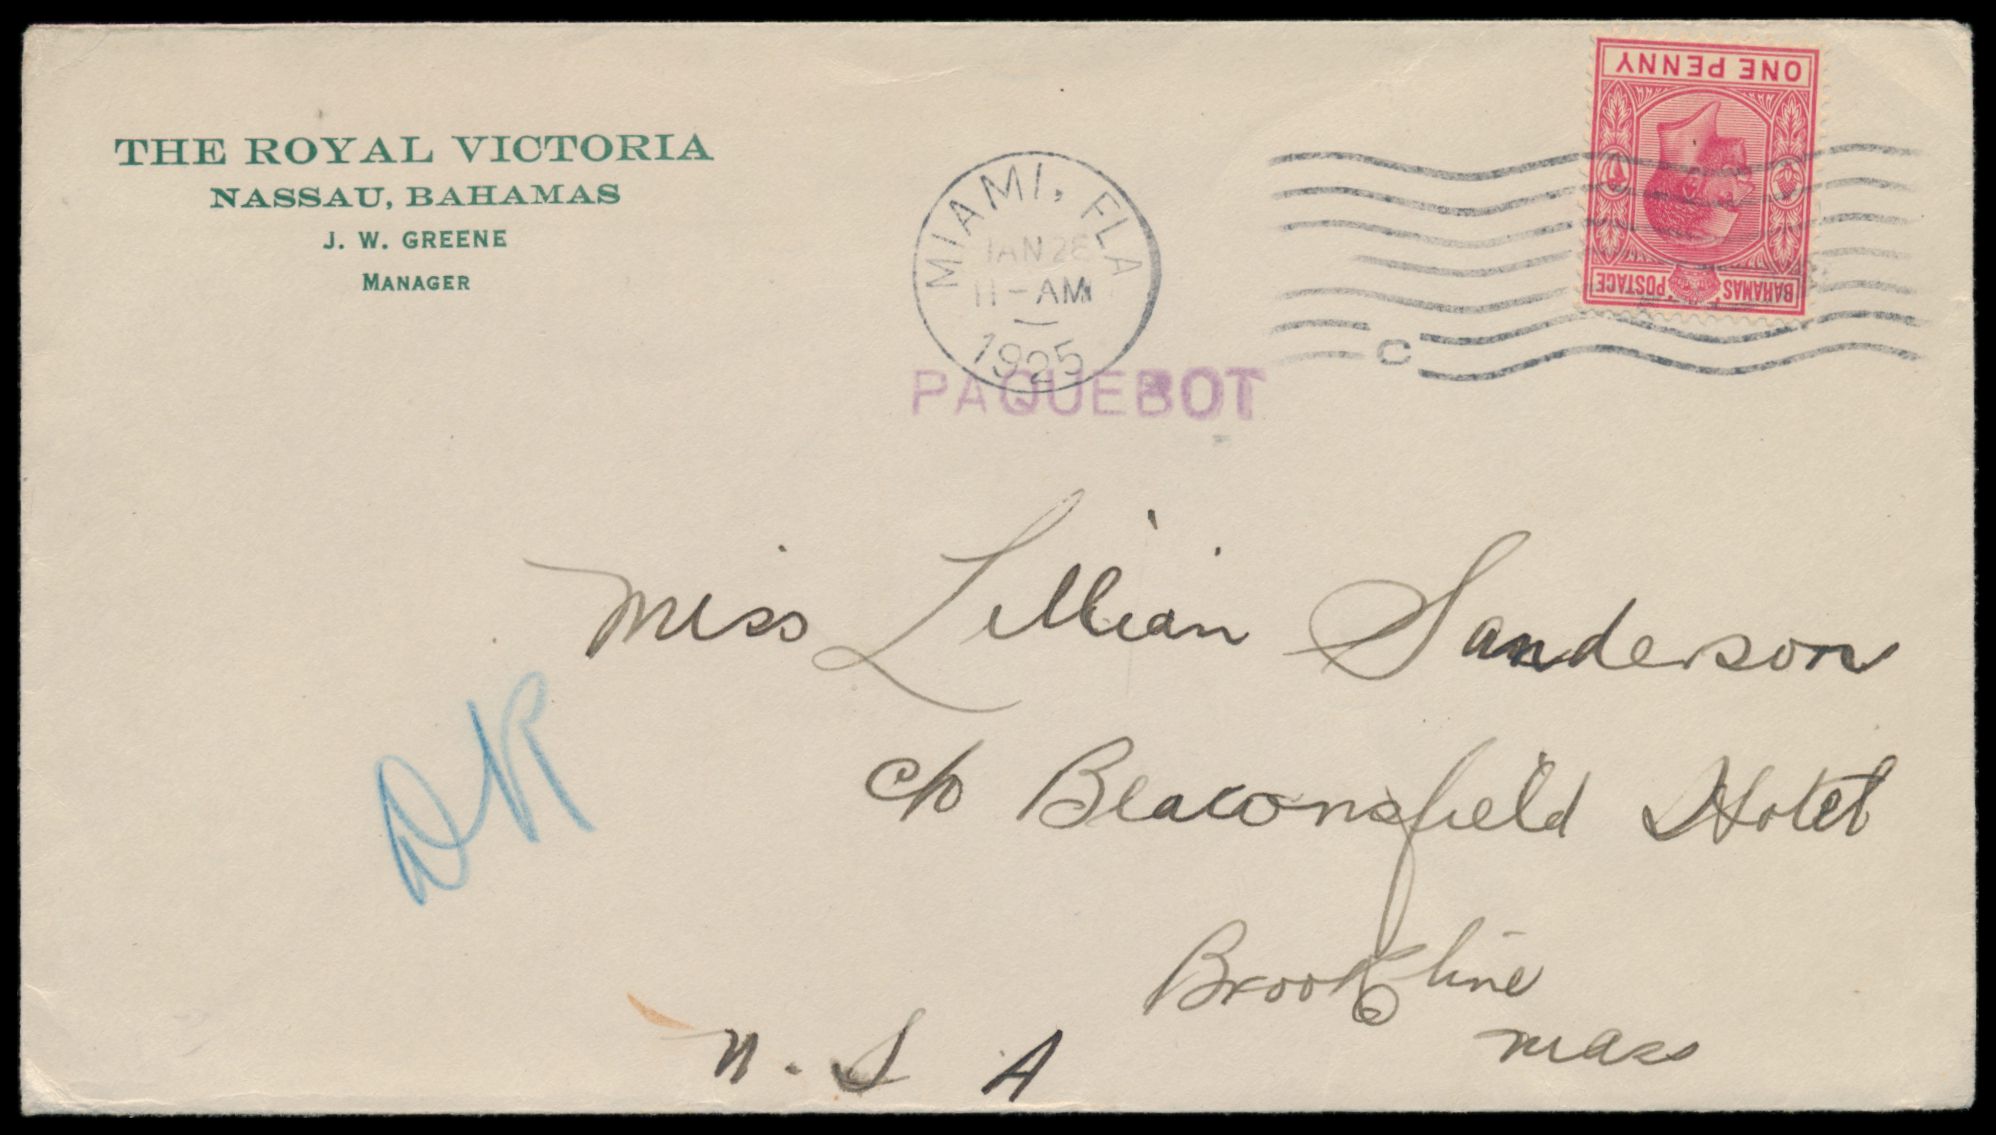 THE ROYAL VICTORIA
NASSAU, BAHAMAS
J. W. GREENE
MANAGER
MIAMI, FLA
JAN 28
11-AM
1925
C
ONE PENNY
BAHAMAS POSTAGE
PAQUEBOT
Miss Lillian Sanderson
c/o Beaconsfield Hotel
Brookline
Mass
U. S A